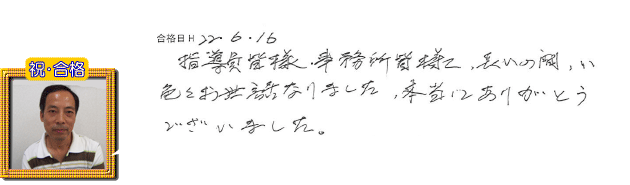 祝・合格
合格日H 22.6.16
指導員皆様、事務所皆様に、長いの間、い
色々お世話なりました、本当にありがとう
ございました。